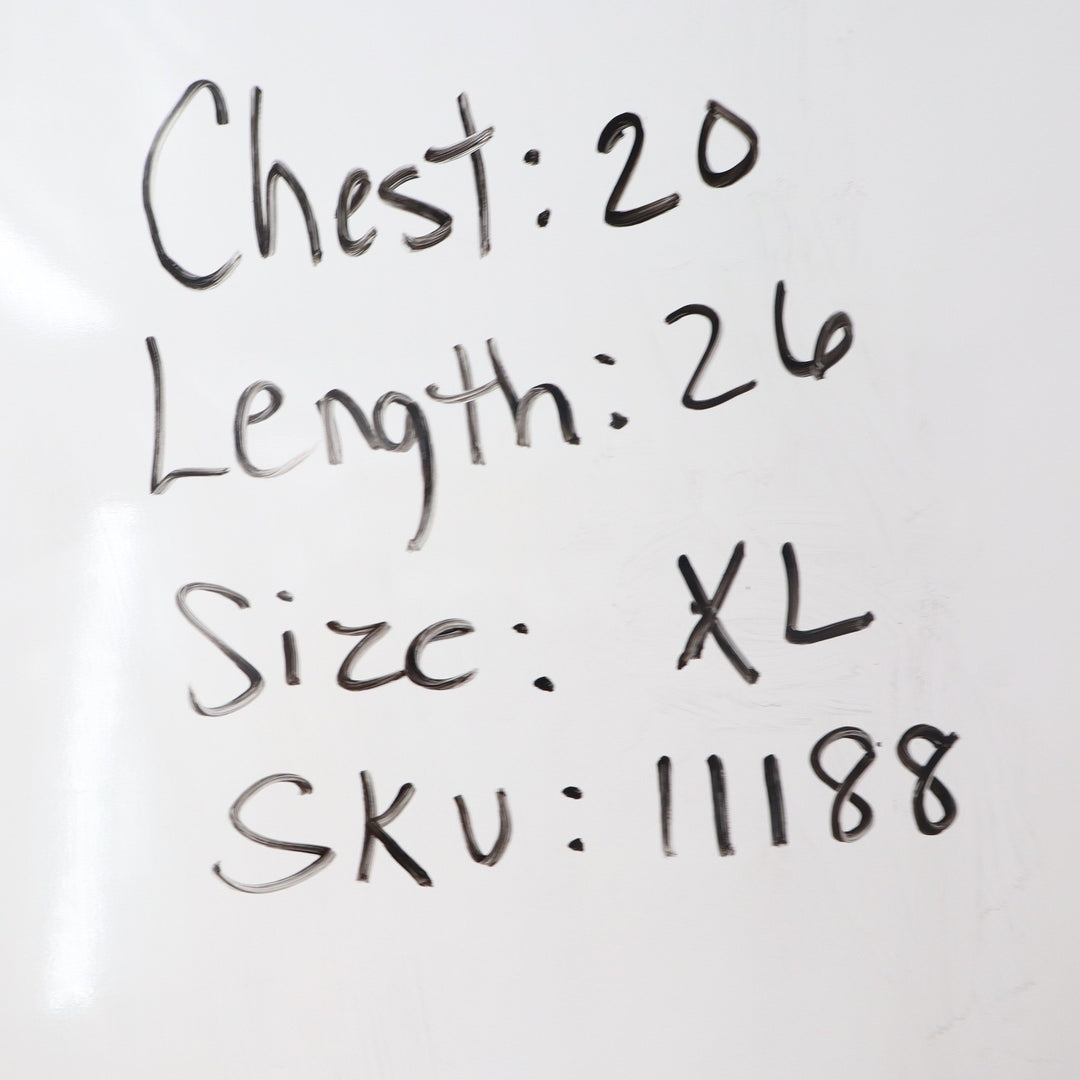 Chest: 20
Length: 26
Size: XL
SKU: 11188